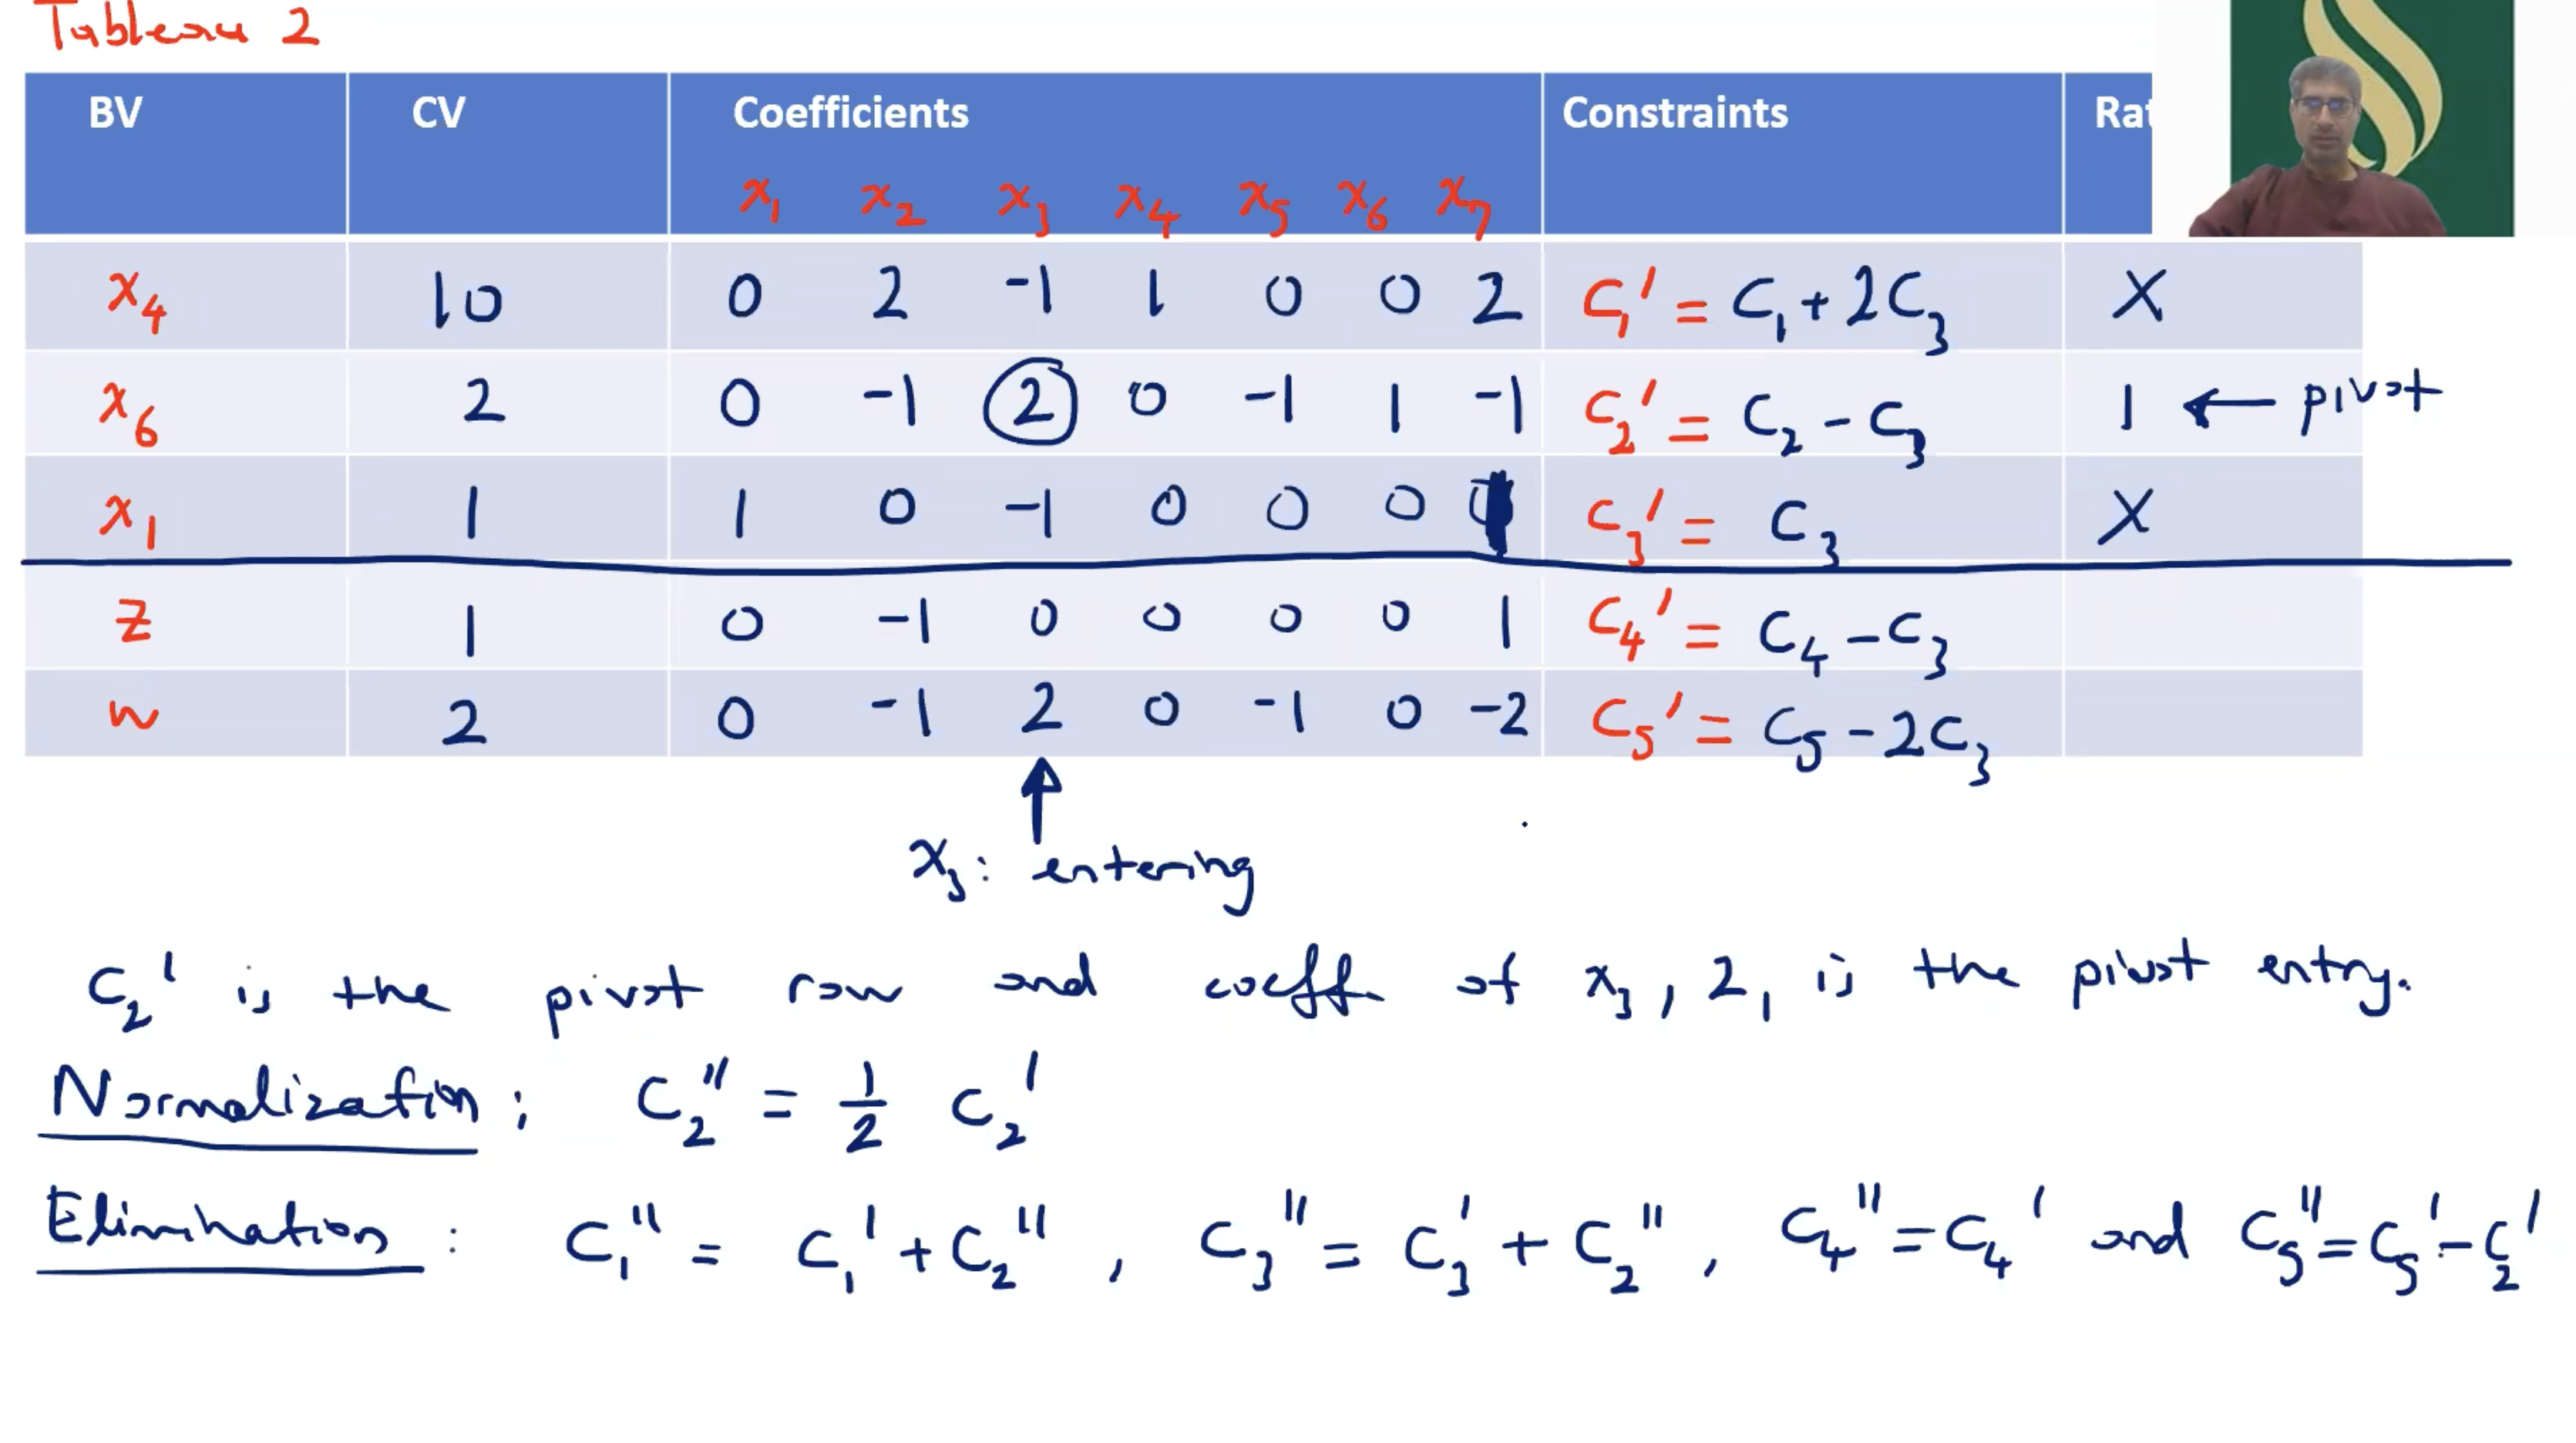 Tableau 2
BV CV Coefficients Constraints Rat
x₁ x₂ x₃ x₄ x₅ x₆ x₇
x₄ 10 0 2 -1 1 0 0 2 C₁' = C₁ + 2C₃ X
x₆ 2 0 -1 2 0 -1 1 -1 C₂' = C₂ - C₃ 1 ← pivot
x₁ 1 1 0 -1 0 0 0 1 C₃' = C₃ X
z 1 0 -1 0 0 0 0 1 C₄' = C₄ - C₃
w 2 0 -1 2 0 -1 0 -2 C₅' = C₅ - 2C₃
x₃: entering
C₂' is the pivot row and coeff. of x₃, 2, is the pivot entry.
Normalization: C₂'' = 1/2 C₂'
Elimination: C₁'' = C₁' + C₂'', C₃'' = C₃' + C₂'', C₄'' = C₄' and C₅'' = C₅' - C₂'